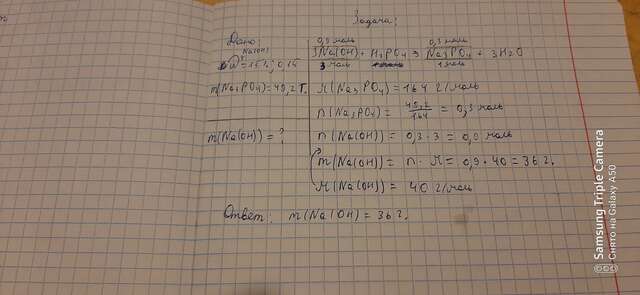 Задача:
Дано:
W(NaOH) = 15%; 0,15
m(Na3PO4) = 49,2 г.
m(Na(OH)) = ?
0,9 моль 0,3 моль
3Na(OH) + H3PO4 → Na3PO4 + 3H2O
3 моль 1 моль
M(Na3PO4) = 164 г/моль
n(Na3PO4) = 49,2/164 = 0,3 моль
n(Na(OH)) = 0,3 · 3 = 0,9 моль
m(Na(OH)) = n · M = 0,9 · 40 = 36 г.
M(Na(OH)) = 40 г/моль
Ответ: m(Na(OH) = 36 г.
Samsung Triple Camera
Снято на Galaxy A50